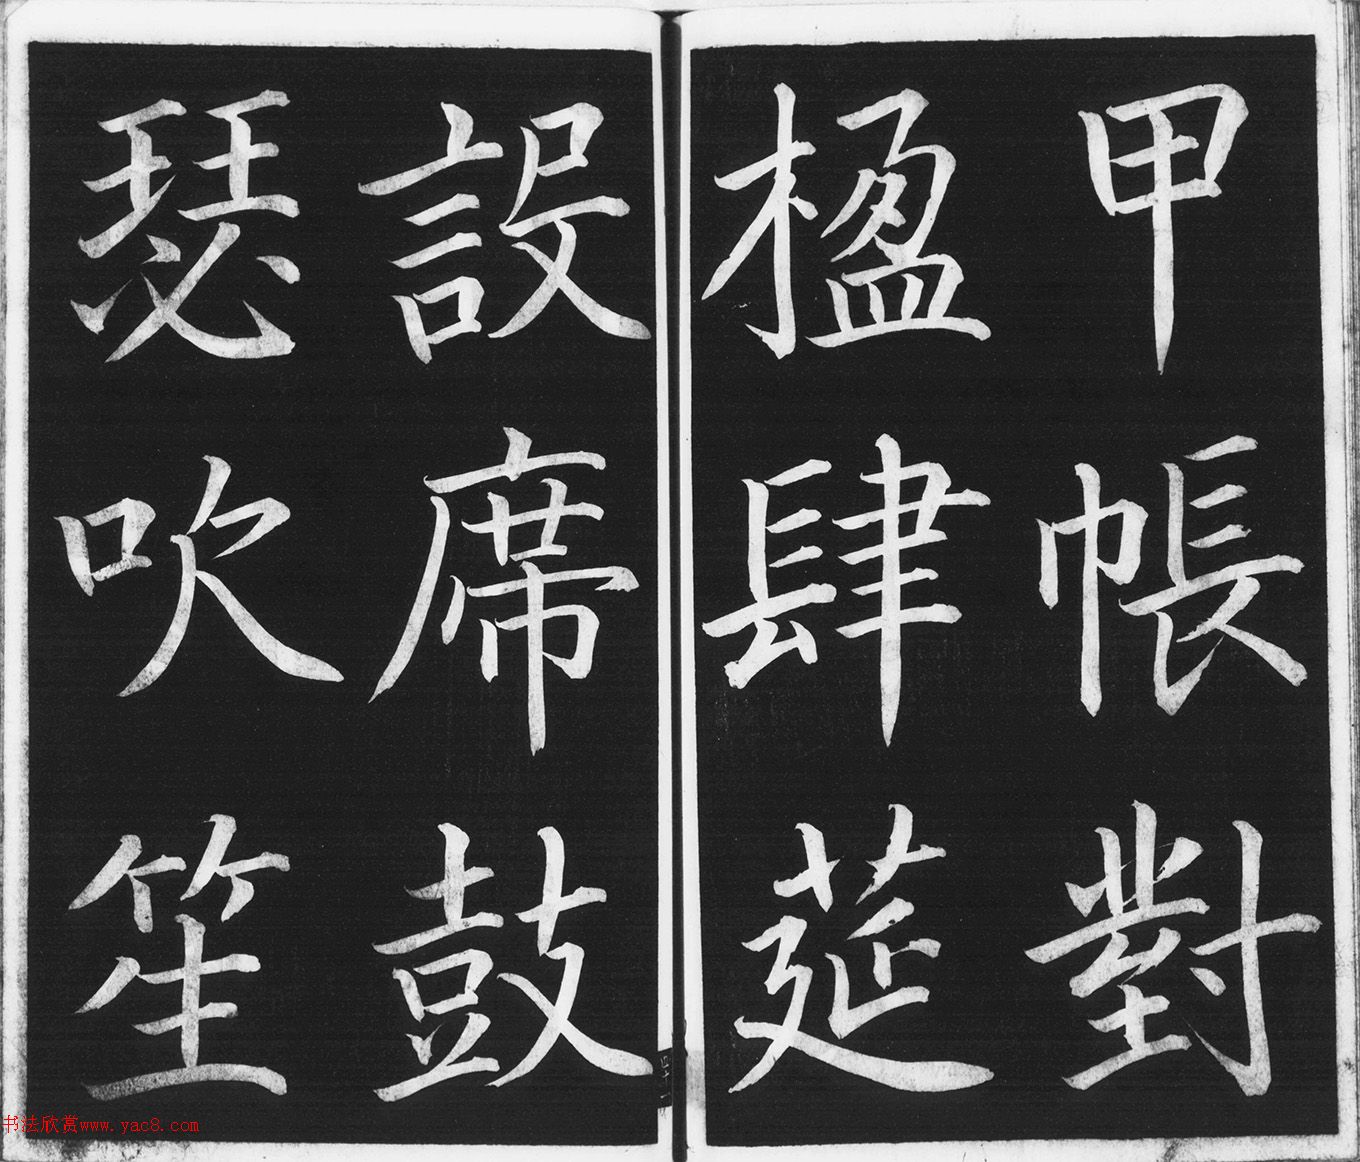 甲帳對
楹肆莚
設席鼓
瑟吹笙
书法欣赏www.yac8.com